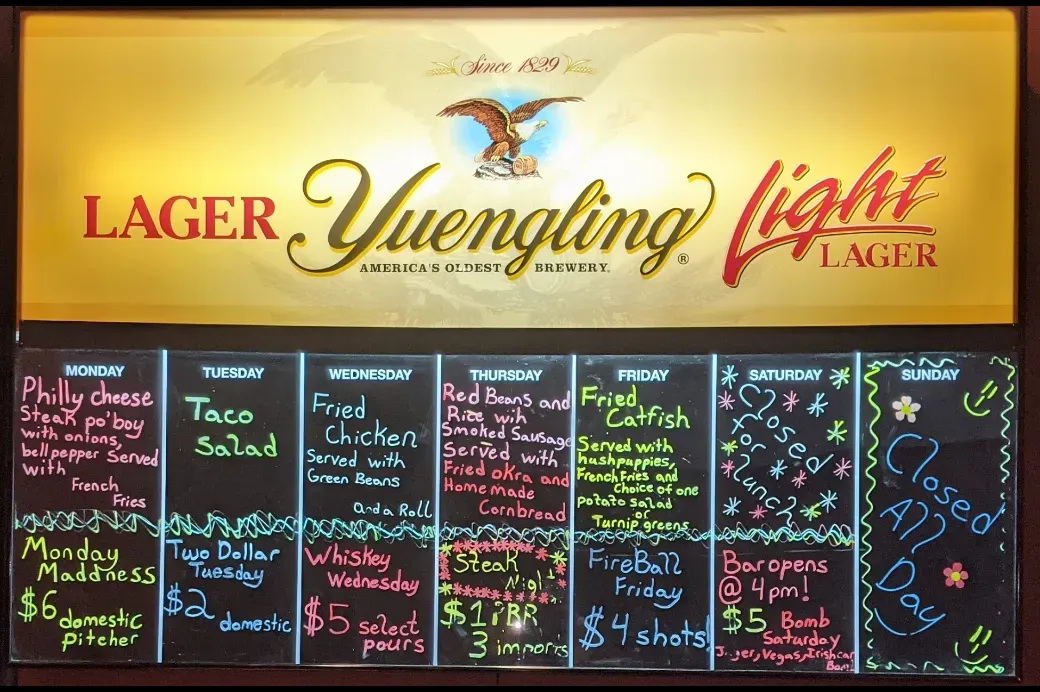 Since 1829
LAGER
Yuengling®
AMERICA'S OLDEST BREWERY.
Light
LAGER
MONDAY
Philly cheese
Steak po'boy
with onions,
bell pepper Served
with
French
Fries
Monday
Maddness
$6 domestic
pitcher
TUESDAY
Taco
Salad
Two Dollar
Tuesday
$2 domestic
WEDNESDAY
Fried
Chicken
Served with
Green Beans
and a Roll
Whiskey
Wednesday
$5 select
pours
THURSDAY
Red Beans and
Rice wih
Smoked Sausage
Served with
Fried okra and
Homemade
Cornbread
Steak
$1 PBR
3 imports
FRIDAY
Fried
Catfish
Served with
hushpuppies,
French Fries and
Choice of one
potato salad
or
Turnip greens
FireBall
Friday
$4 shots!
SATURDAY
Closed
for
lunch
Bar opens
@ 4pm!
$5 Bomb
Saturday
Vegas, Irish car
SUNDAY
Closed
All
Day